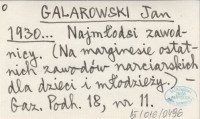 GALAROWSKI Jan
1930... Najmłodsi zawod-
nicy. (Na marginesie ostat-
nich zawodów narciarskich
dla dzieci i młodzieży). -
Gaz. Podh. 18, nr 11.
15/010/0496